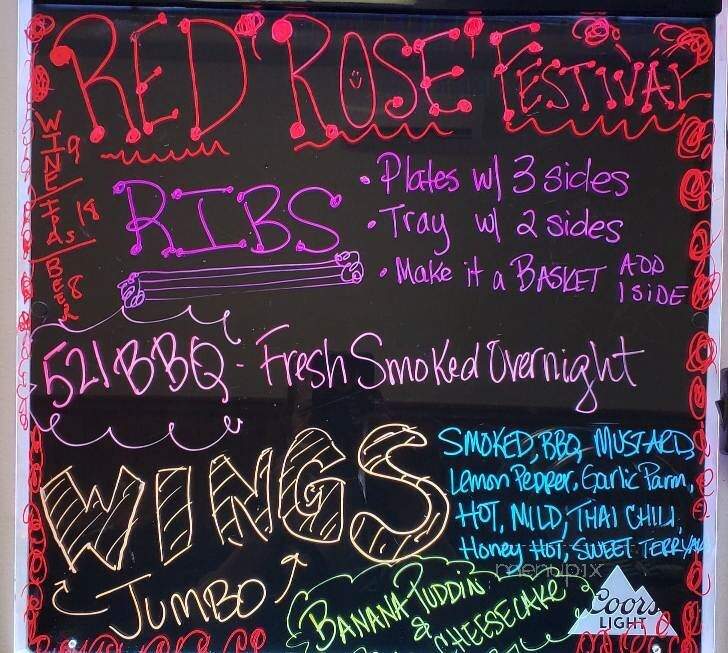 RED ROSE FESTIVAL
WINE 9
IPAs 18
BEER 8
RIBS
• Plates w/ 3 sides
• Tray w/ 2 sides
• Make it a BASKET ADD 1 SIDE
521 BBQ - Fresh Smoked Overnight
WINGS
JUMBO
SMOKED, BBQ, MUSTARD,
Lemon Pepper, Garlic Parm,
HOT, MILD, THAI CHILI,
Honey HOT, SWEET TERRYAKI
menupix
BANANA PUDDIN
& CHEESECAKE
Coors
LIGHT